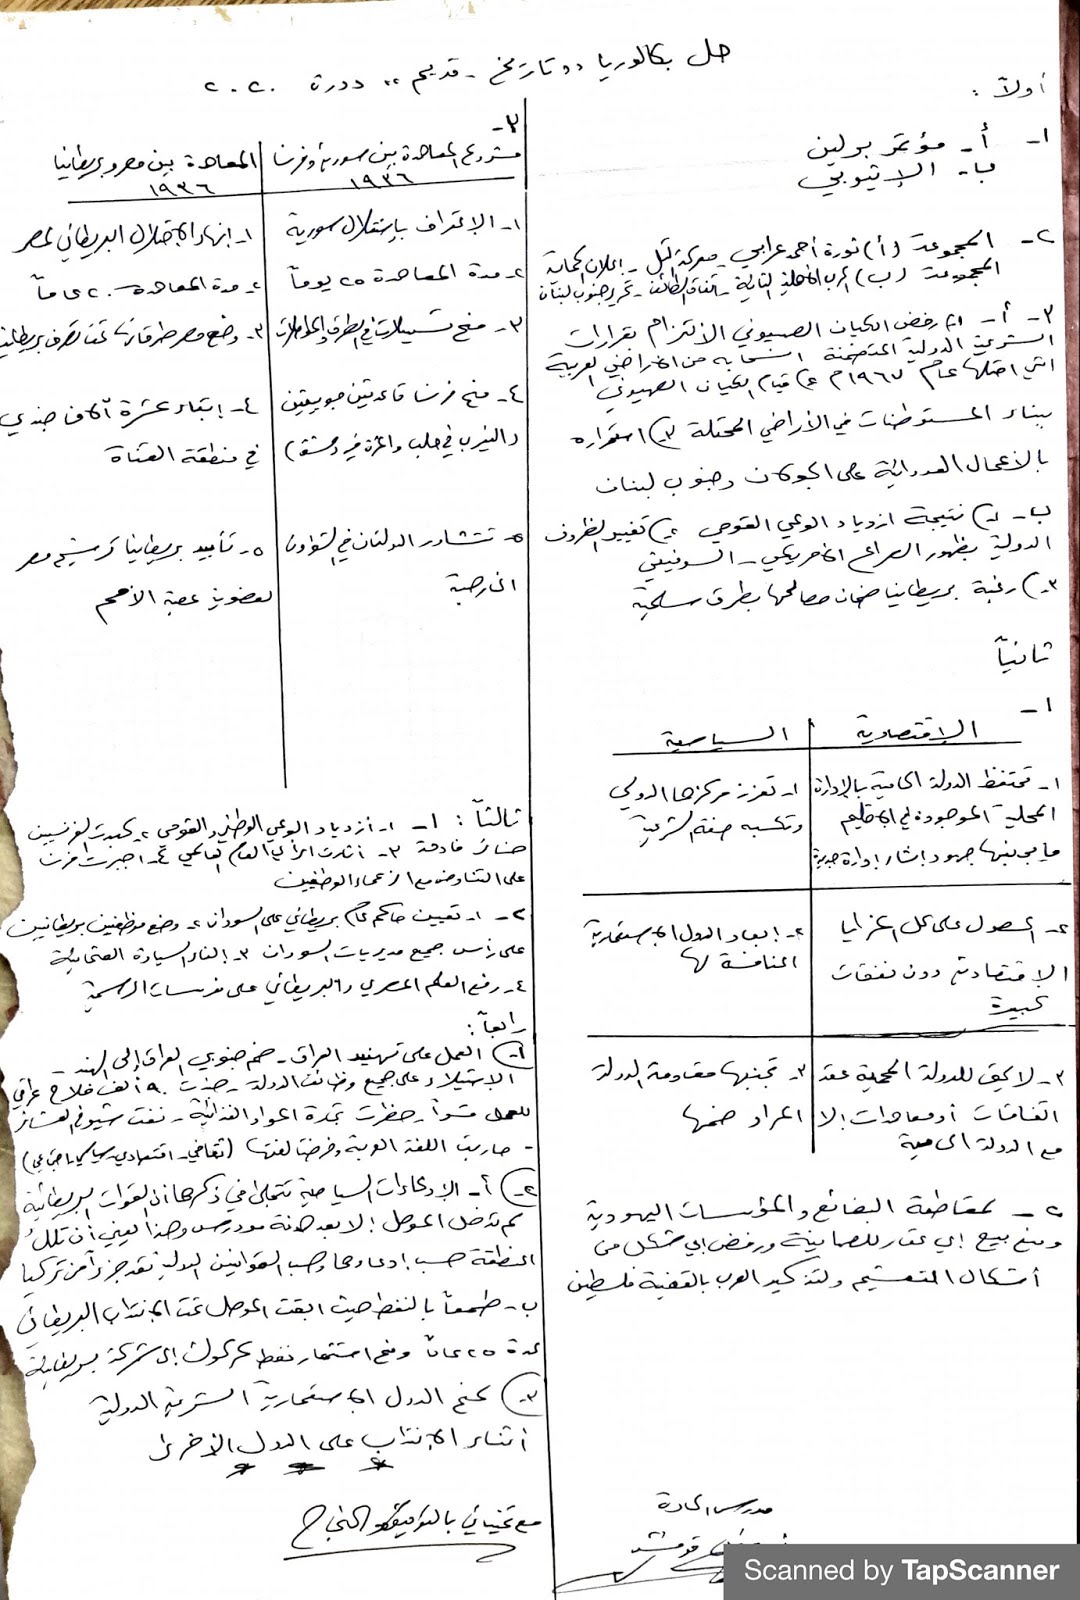 حل بكالوريا "تاريخ - قديم" دورة ٢٠٢٠
أولاً :
١- أ- مؤتمر برلين
ب- الإثيوبي
٢- المجموعة (أ) ثورة أحمد عرابي - معركة التل - إعلان الحماية
المجموعة (ب) الحرب الأهلية الثانية - اتفاق الطائف - تحرير جنوب لبنان
٣- أ- رفض الكيان الصهيوني الالتزام بقرارات
الشرعية الدولية المتضمنة انسحابه من الأراضي العربية
التي احتلها عام ١٩٦٧م ٢) قيام الكيان الصهيوني
ببناء المستوطنات في الأراضي المحتلة ٣) استمراره
بالأعمال العدوانية على الجولان وجنوب لبنان
ب- ١) نتيجة ازدياد الوعي القومي ٢) تغيير الظروف
الدولية بظهور الصراع الأمريكي - السوفيتي
٣) رغبة بريطانيا ضمان مصالحها بطرق سلمية
ثانياً
١-
الإقتصادية | السياسية
١- تحتفظ الدولة الحامية بالإدارة | ١- تعزز مركزها الدولي
المحلية الموجودة في الإقليم | وتكسبه صفة شرعية
ما يجنبها جهود إنشاء إدارة جديدة
٢- الحصول على كل المزايا | ٢- إبعاد الدول الاستعمارية
الاقتصادية دون نفقات | المنافسة لها
كبيرة
٣- لا يحق للدولة المحمية عقد | ٣- تجنبها مقاومة الدولة
اتفاقات أو معاهدات إلا | المراد ضمها
مع الدولة الحامية
٢- لمقاطعة البضائع والمؤسسات اليهودية
ومنع بيع أي عقار للصهاينة ورفض أي شكل من
أشكال التقسيم ولتذكير العرب بالقضية فلسطين
مدرس المادة
٣-
مشروع المعاهدة بين سورية وفرنسا | المعاهدة بين مصر وبريطانيا
١٩٣٦ | ١٩٣٦
١- الإعتراف بإستقلال سورية | ١- إنهاء الاحتلال البريطاني لمصر
٢- مدة المعاهدة ٢٥ يوماً | ٢- مدة المعاهدة ٢٠ عاماً
٣- منح تسهيلات في الطرق والمواصلات | ٣- وضع مصر طرقاتها تحت تصرف بريطانيا
٤- منح فرنسا قاعدتين جويتين | ٤- إبقاء عشرة آلاف جندي
(النيرب في حلب والمزة في دمشق) | في منطقة القناة
٥- تتشاور الدولتان في الشؤون | ٥- تأييد بريطانيا ترشيح مصر
الخارجية | لعضوية عصبة الأمم
ثالثاً : ١- ١- ازدياد الوعي الوطني والقومي ٢- تكبدت الفرنسيين
خسائر فادحة ٣- أثارت الرأي العام العالمي ٤- اجبرت فرنسا
على التفاوض مع الزعماء الوطنيين
٢- ١- تعيين حاكم عام بريطاني على السودان ٢- وضع موظفين بريطانيين
على رأس جميع مديريات السودان ٣- إلغاء السيادة العثمانية
٤- رفع العلم المصري والبريطاني على مؤسسات الرسمية
رابعاً :
١) العمل على تهنيد العراق - ضم جنوبي العراق إلى الهند -
الإستيلاء على جميع وظائف الدولة - جندت ٩٠ ألف فلاح عراقي
للعمل قسراً - حظرت تجارة المواد الغذائية - نفت شيوخ العشائر
- حاربت اللغة العربية وفرضت لغتها (ثقافي - اقتصادي - سياسي - اجتماعي)
٢) أ- الإدعاءات السياسية تتجلى في ذكرها أن القوات البريطانية
لم تدخل الموصل إلا بعد هدنة مودروس وهذا يعني أن تلك
المنطقة حسب إدعاءها وحسب القوانين الدولية تعد جزءاً من تركيا
ب- طمعاً بالنفط حيث ابقت الموصل تحت الانتداب البريطاني
لمدة ٢٥ عاماً ومنح استثمار نفط كركوك إلى شركة بريطانية
٣) لمنح الدول الاستعمارية الشرعية الدولية
أثناء الانتداب على الدول الأخرى
مع تمنياتي بالتوفيق والنجاح
Scanned by TapScanner